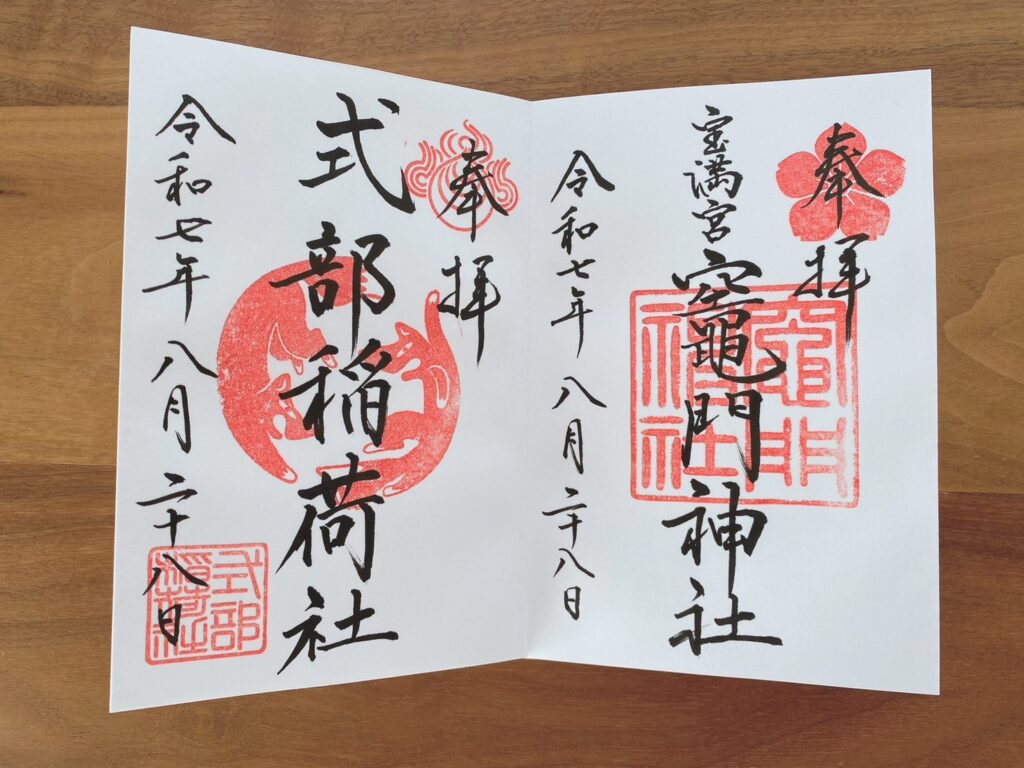 奉拝
宝満宮
竈門神社
竈門
神社
令和七年八月二十八日
奉拝
式部稲荷社
令和七年八月二十八日
式部